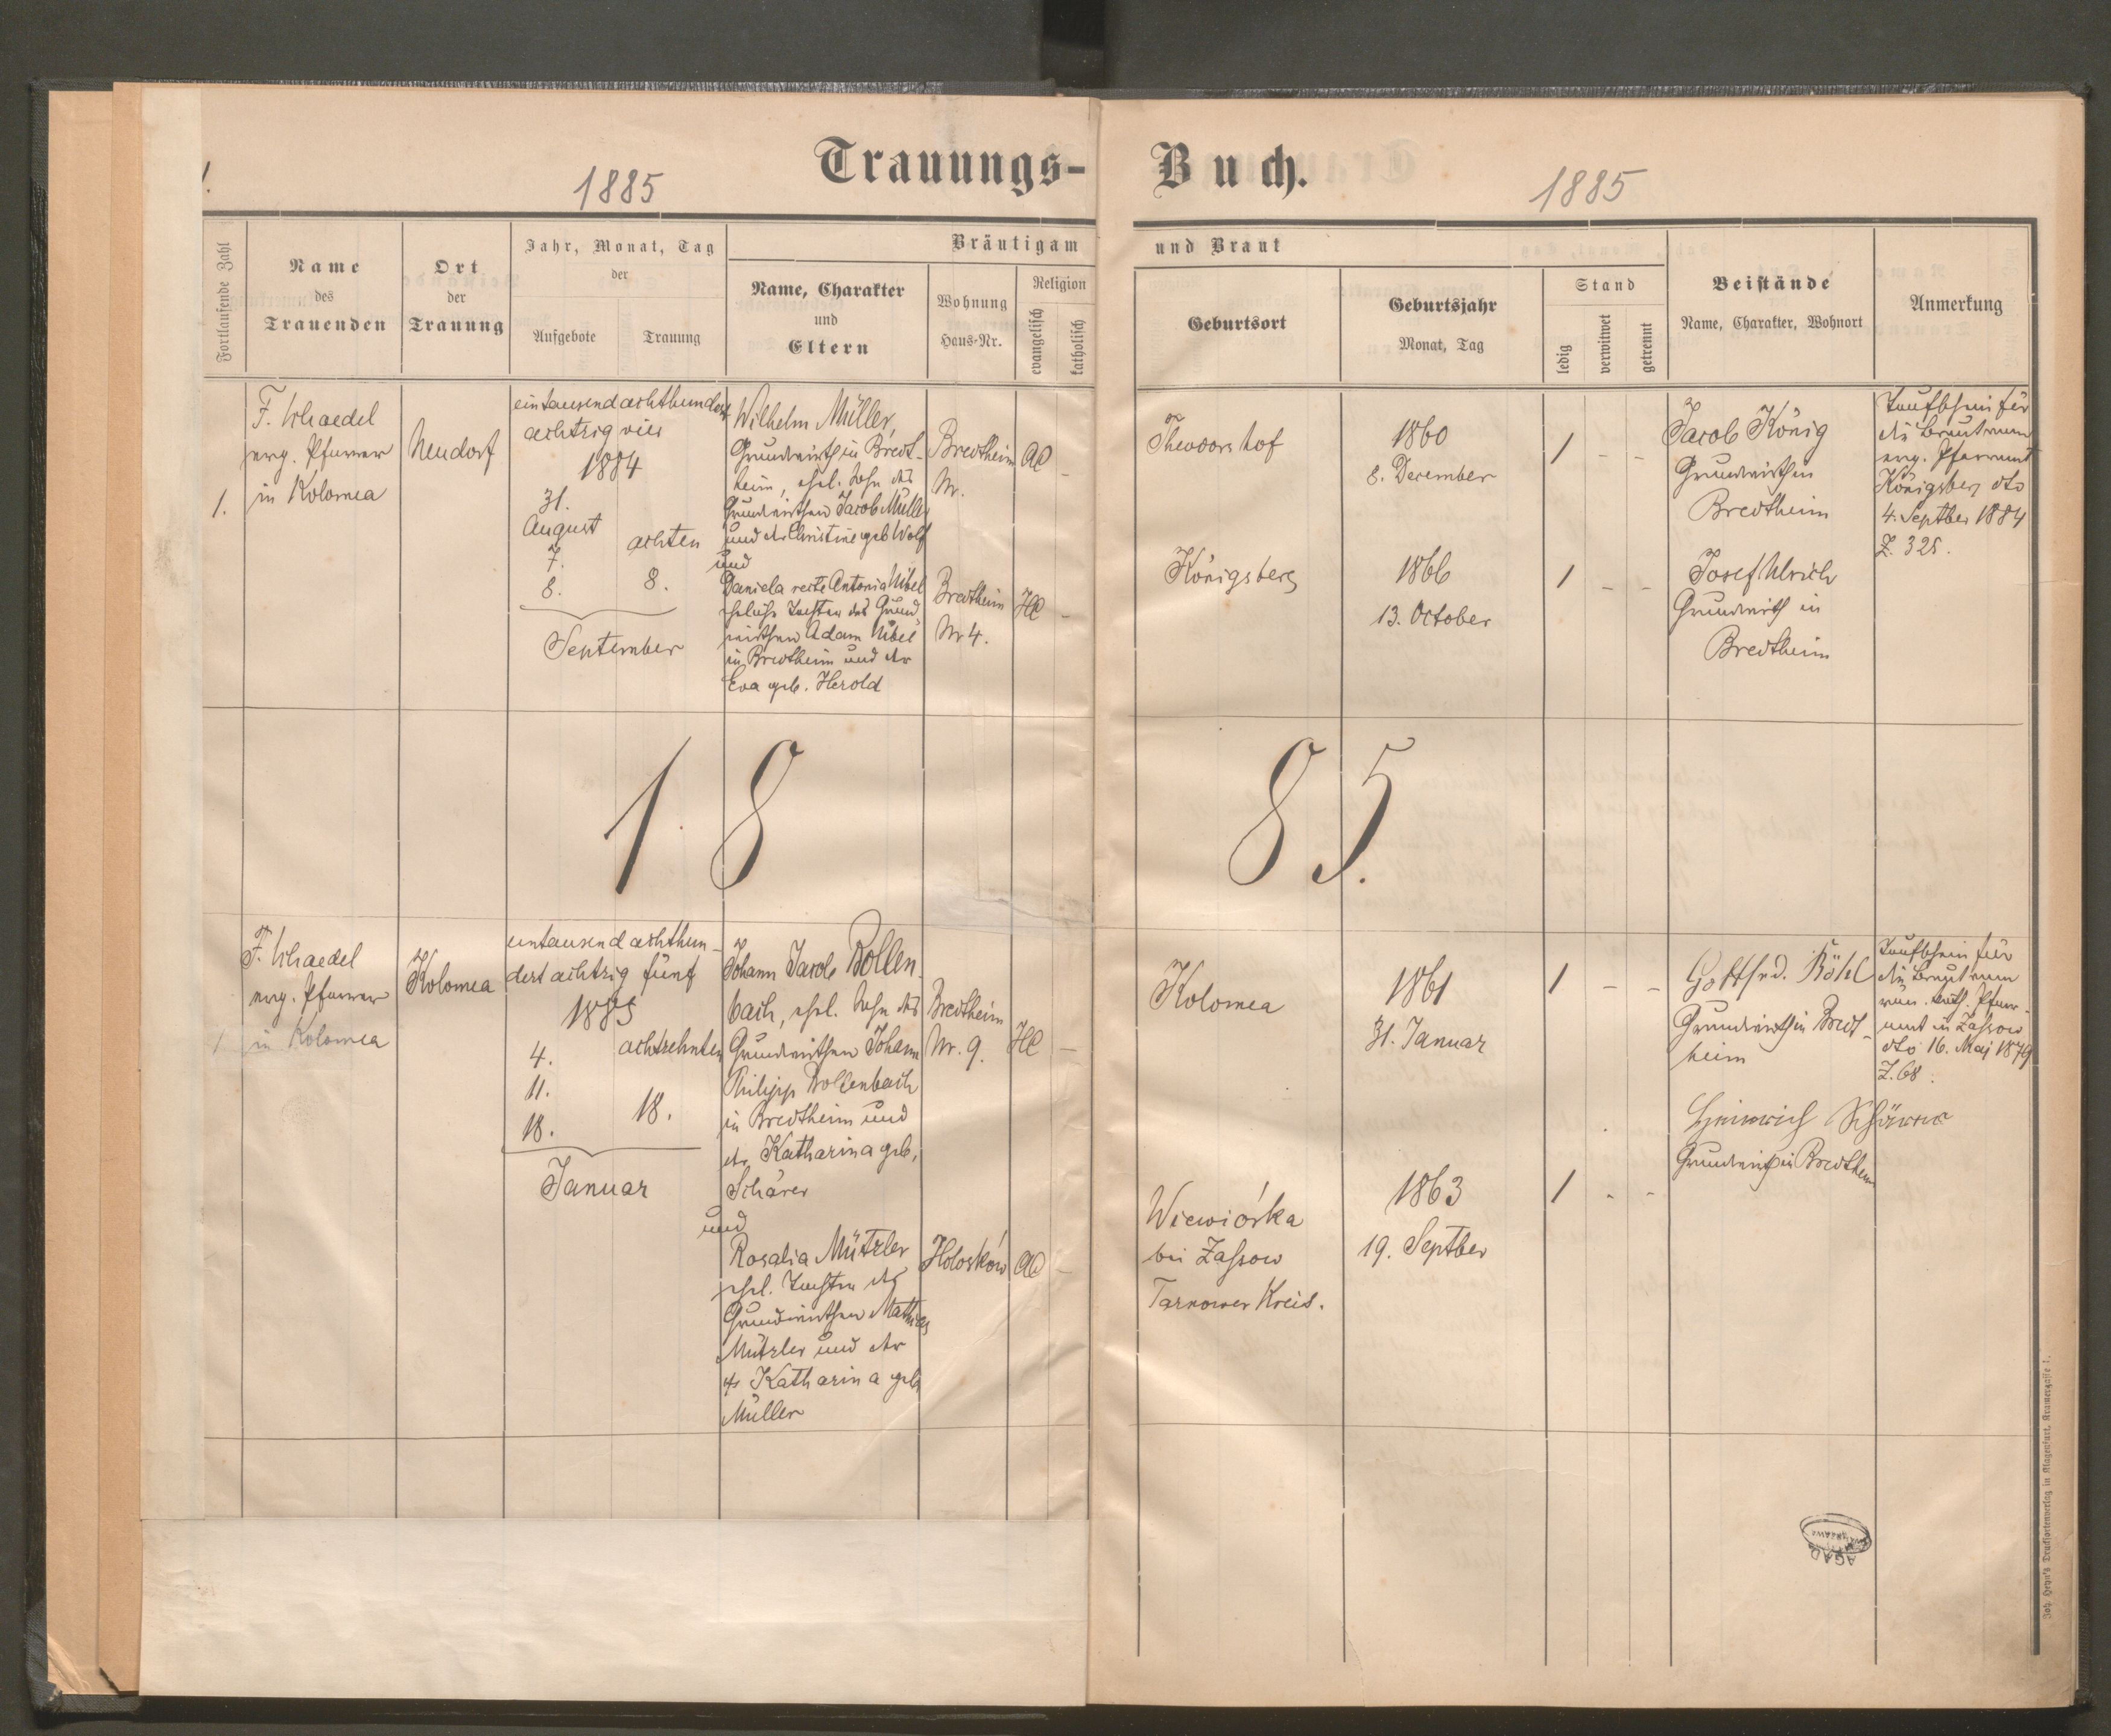 1.
1885
Trauungs-
Fortlaufende Zahl
Name
des
Trauenden
Ort
der
Trauung
Jahr, Monat, Tag
der
Aufgebote
Trauung
Bräutigam
Name, Charakter
und
Eltern
Wohnung
Haus-Nr.
Religion
evangelisch
katholisch
1.
F. Schaedel
evg. Pfarrer
in Kolomea
Neudorf
eintausendachthundert
achtzig vier
1884
31.
August
7.
8.
achten
8.
September
Wilhelm Müller,
Grundwirth in Bredt-
heim, ehel. Sohn des
Grundwirthen Jacob Müller
und der Christine geb Wolf
und
Daniela recte Antonia Uibel
eheliche Tochter des Grund-
wirthen Adam Uibel
in Bredtheim und der
Eva geb. Herold
Bredtheim
Nr.
AC
-
Bredtheim
Nr 4.
HC
-
18
1.
F. Schaedel
evg. Pfarrer
in Kolomea
Kolomea
eintausend achthun-
dert achtzig fünf
1885
4.
11.
18.
achtzehnten
18.
Januar
Johann Jacob Bollen-
bach, ehel. Sohn des
Grundwirthen Johann
Philipp Bollenbach
in Bredtheim und
der Katharina geb.
Schärer
und
Rosalia Mützler
ehel. Tochter des
Grundwirthen Mathias
Mützler und der
Katharina geb
Müller
Bredtheim
Nr. 9.
HC
-
Holosków
AC
-
Buch.
1885
und Braut
Geburtsort
Geburtsjahr
Monat, Tag
Stand
ledig
verwitwet
getrennt
Beistände
Name, Charakter, Wohnort
Anmerkung
Theodorshof
1860
8. December
1 - -
Jacob König
Grundwirth in
Bredtheim
Taufschein für
die Braut vom
evg. Pfarramt
Königsberg dto
4. Septber 1884
Z. 325.
Königsberg
1866
13. October
1 - -
Josef Ulrich
Grundwirth in
Bredtheim
85.
Kolomea
1861
31. Januar
1 - -
Gottfrd. Röhl
Grundwirth in Bredt-
heim
Taufschein für
die Braut vom
Pfarr-
amt in Zassow
dto 16. Mai 1879
Z. 68.
Heinrich
Grundwirth in Bredtheim
Wiewiórka
bei Zassow
Tarnower Kreis.
1863
19. Septber
1 - -
AGAD
Joh. Heyn's Drucksortenverlag in Klagenfurt, Kramergasse 1.